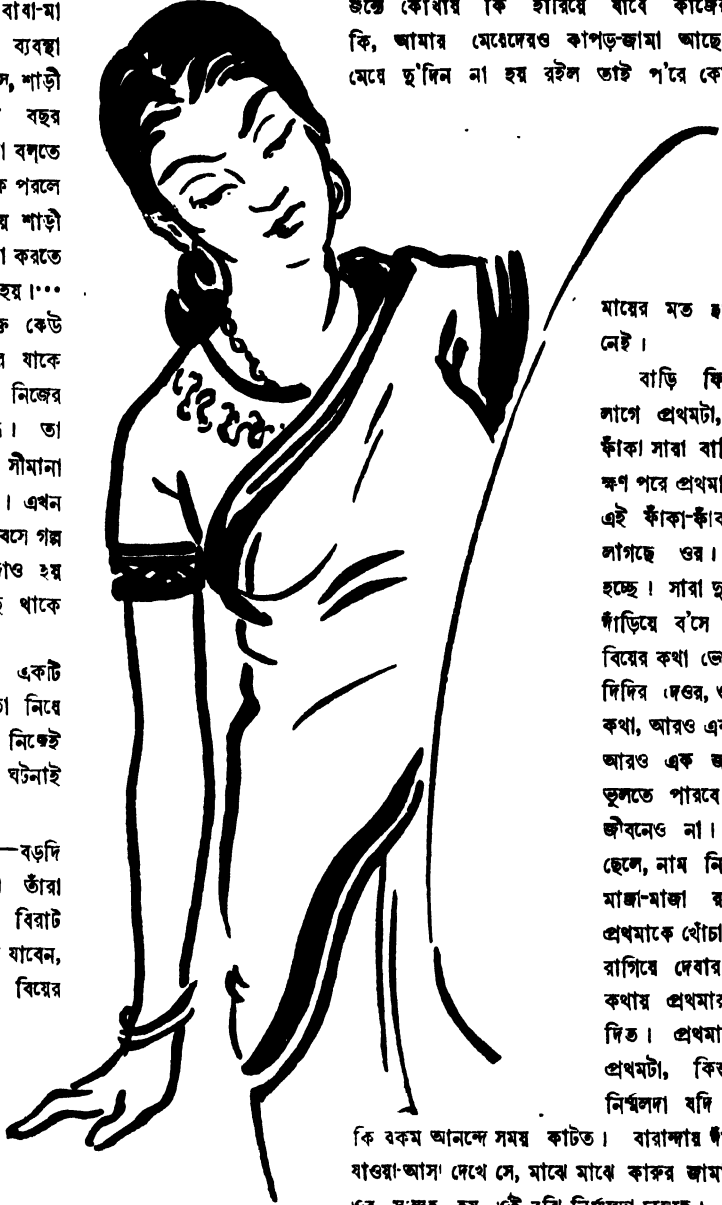 বাবা-মা
ব্যবস্থা
স, শাড়ী
বছর
বলতে
পরলে
শাড়ী
করতে
হয়।···
কেউ
যাকে
নিজের
। তা
সীমানা
। এখন
বসে গল্প
হয়
থাকে
একটি
নিয়ে
নিজেই
ঘটনাই
—বড়দি
তাঁরা
বিরাট
যাবেন,
বিয়ের
কোথায় কি হারিয়ে যাবে কাজের
কি, আমার মেয়েদেরও কাপড়-জামা আছে
মেয়ে দু'দিন না হয় রইল তাই প'রে
মায়ের মত
নেই।
বাড়ি
লাগে প্রথমটা,
ফাঁকা সারা
ক্ষণ পরে
এই ফাঁকা-ফাঁকা
লাগছে ওর।
হচ্ছে। সারা
দাঁড়িয়ে ব'সে
বিয়ের কথা
দিদির দেওর,
কথা, আরও
আরও এক
ভুলতে পারবে
জীবনেও না।
ছেলে, নাম
মাজা-মাজা
প্রথমাকে খোঁচা
রাগিয়ে দেবার
কথায় প্রথমার
দিত। প্রথমা
প্রথমটা,
নির্ম্মলদা যদি
কি রকম আনন্দে সময় কাটত। বারান্দায়
যাওয়া-আসা দেখে সে, মাঝে মাঝে কারুর